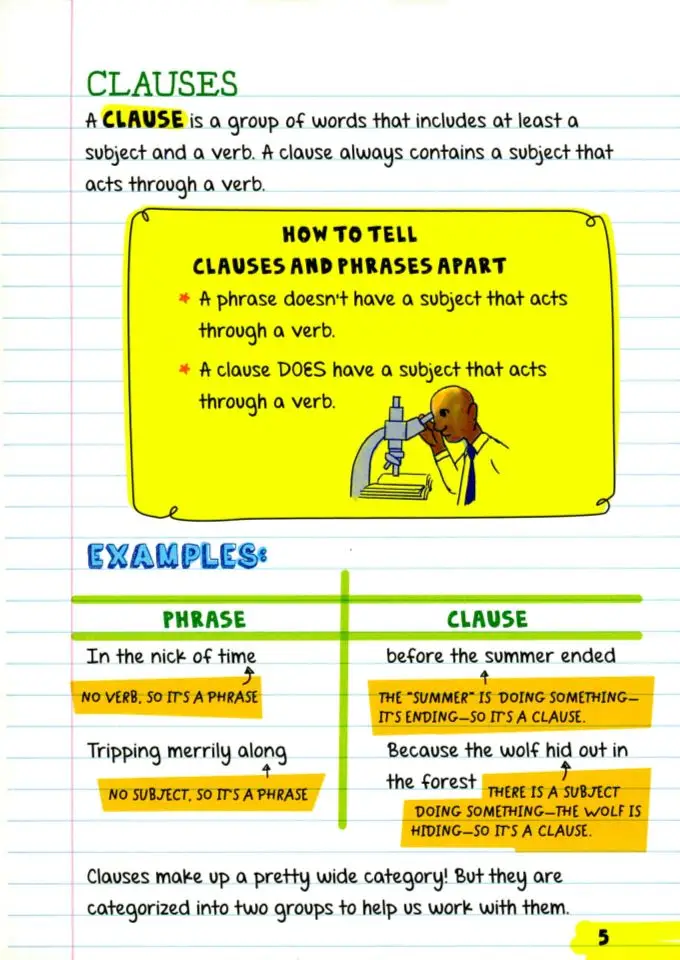 CLAUSES
A CLAUSE is a group of words that includes at least a
subject and a verb. A clause always contains a subject that
acts through a verb.
HOW TO TELL
CLAUSES AND PHRASES APART
* A phrase doesn't have a subject that acts
through a verb.
* A clause DOES have a subject that acts
through a verb.
EXAMPLES:
PHRASE
In the nick of time
NO VERB, SO IT'S A PHRASE
Tripping merrily along
NO SUBJECT, SO IT'S A PHRASE
CLAUSE
before the summer ended
THE "SUMMER" IS DOING SOMETHING—
IT'S ENDING—SO IT'S A CLAUSE.
Because the wolf hid out in
the forest
THERE IS A SUBJECT
DOING SOMETHING—THE WOLF IS
HIDING—SO IT'S A CLAUSE.
Clauses make up a pretty wide category! But they are
categorized into two groups to help us work with them.
5